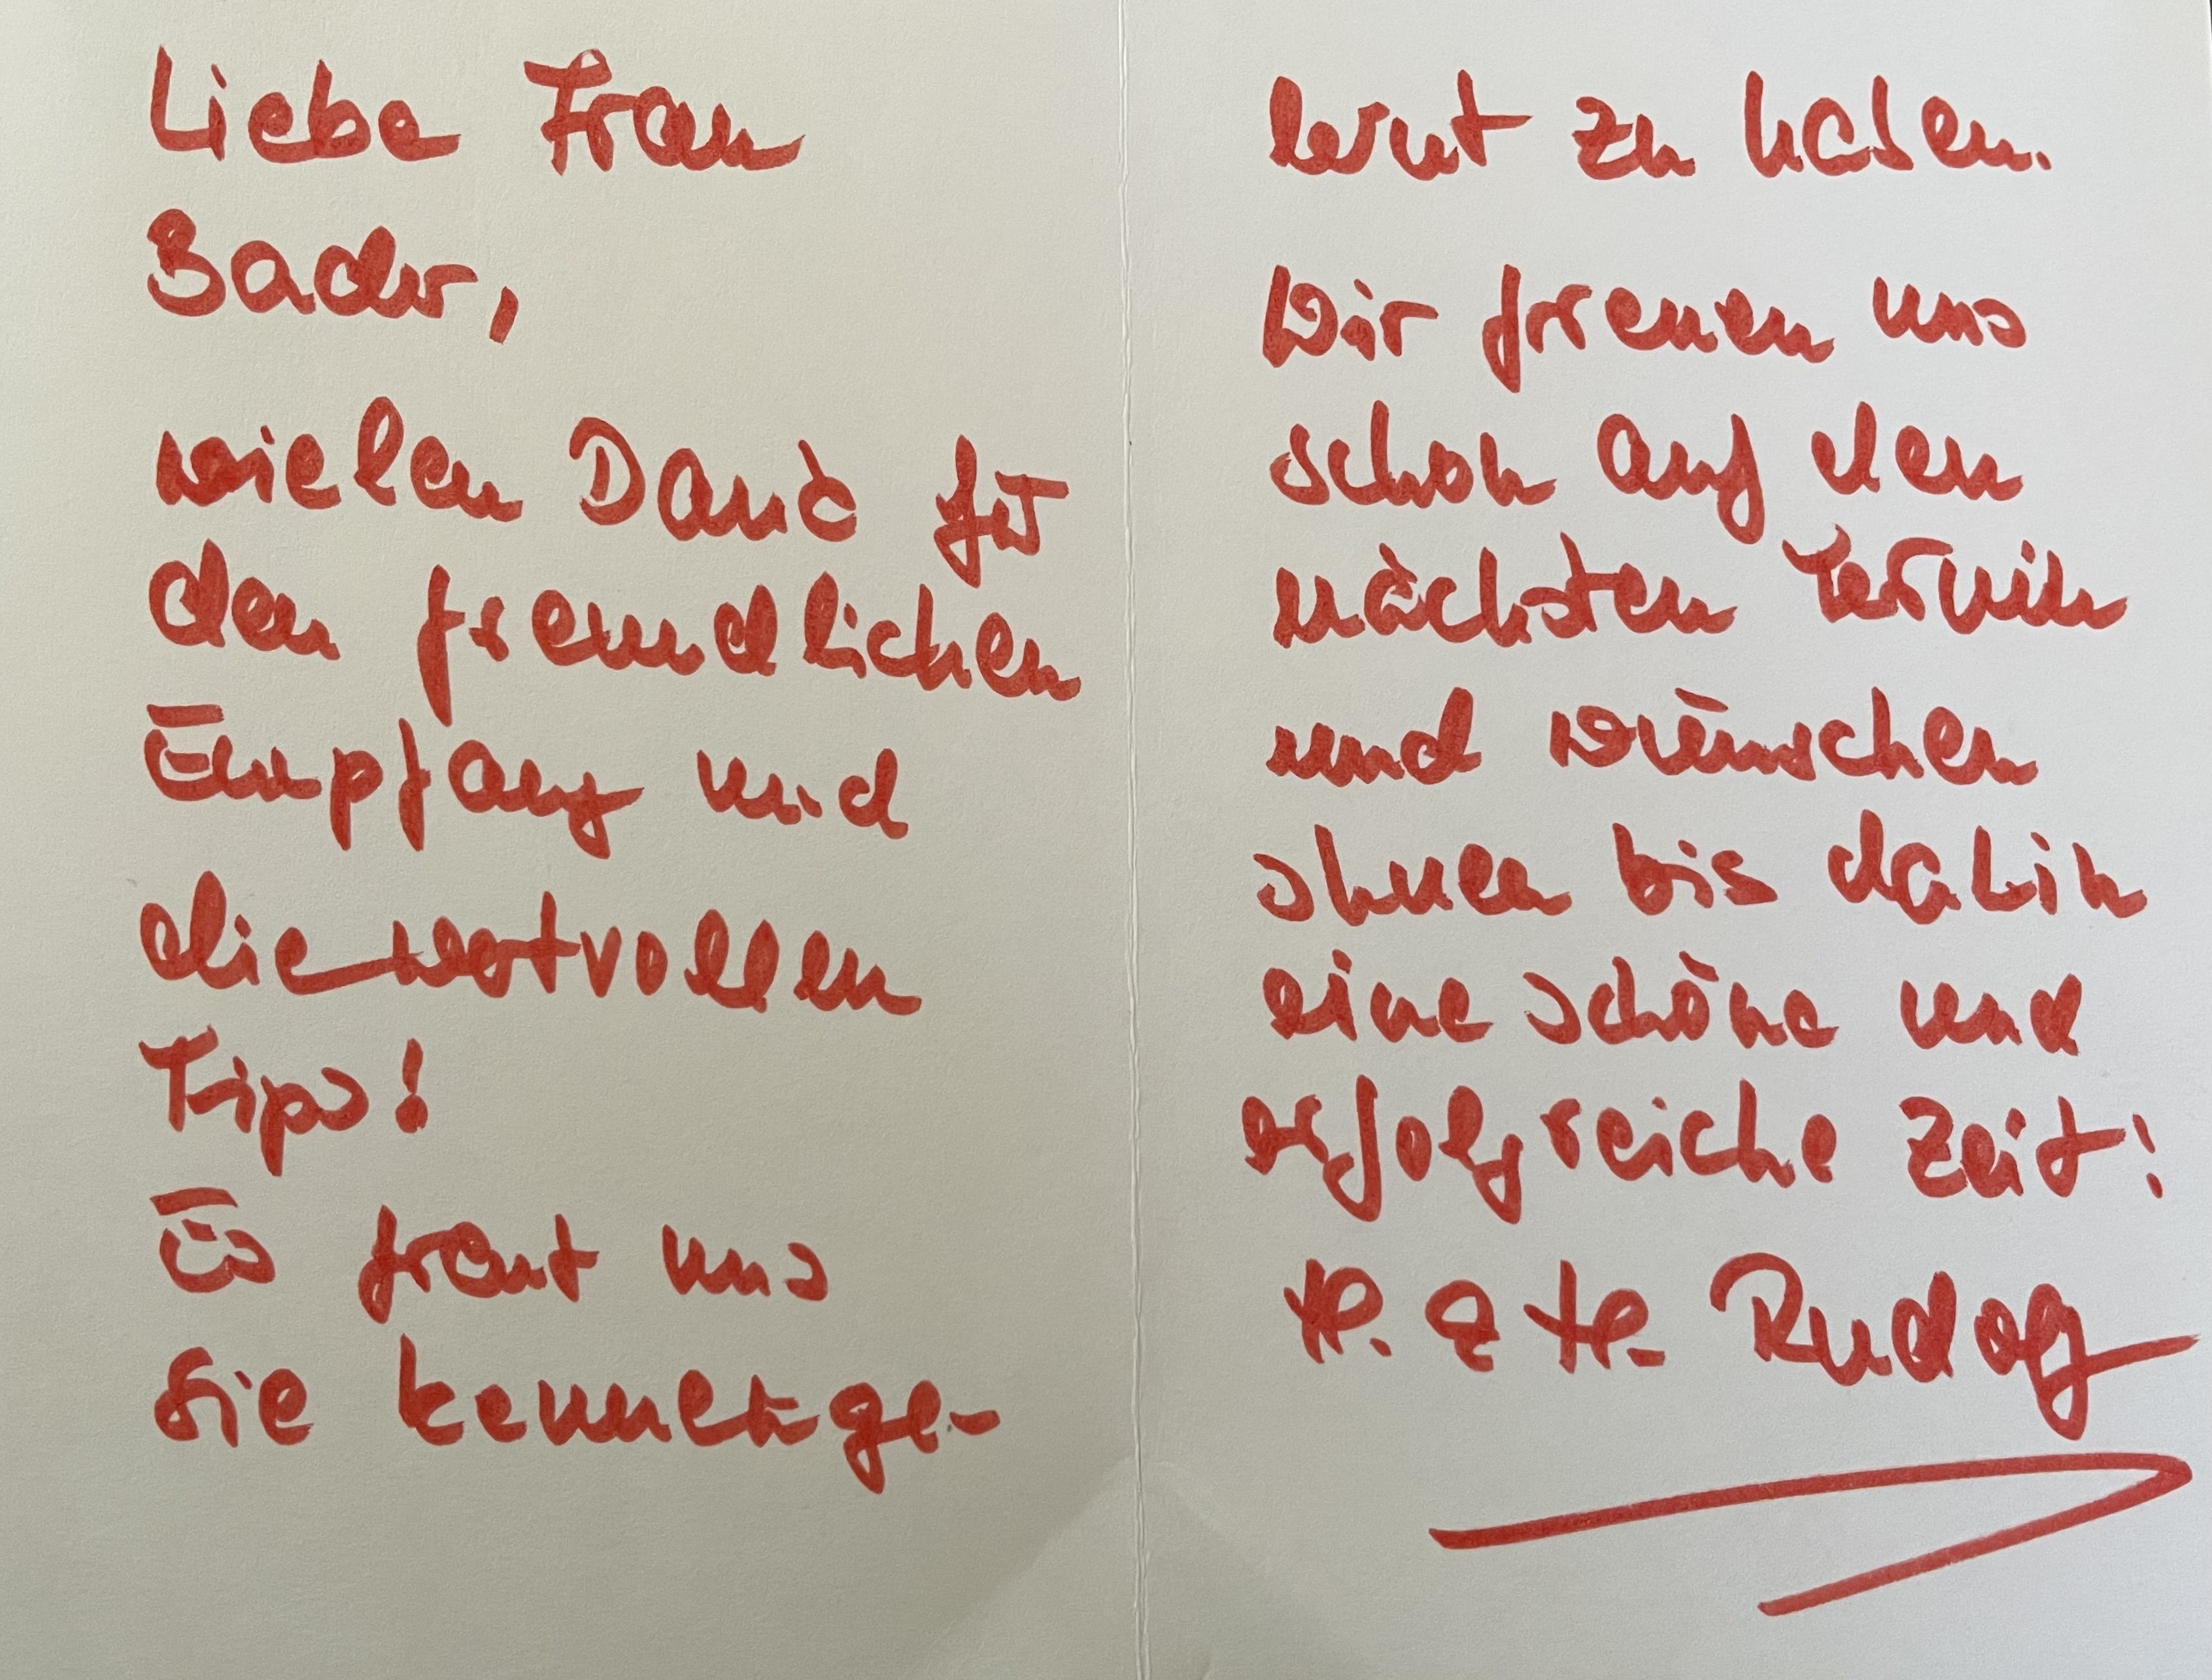 Liebe Frau
Bader,
vielen Dank für
den freundlichen
Empfang und
die wertvollen
Tips!
Es freut uns
Sie kennenge-
lernt zu haben.
Wir freuen uns
schon auf den
nächsten Termin
und wünschen
Ihnen bis dahin
eine schöne und
erfolgreiche Zeit!
H. & H. Rudolf